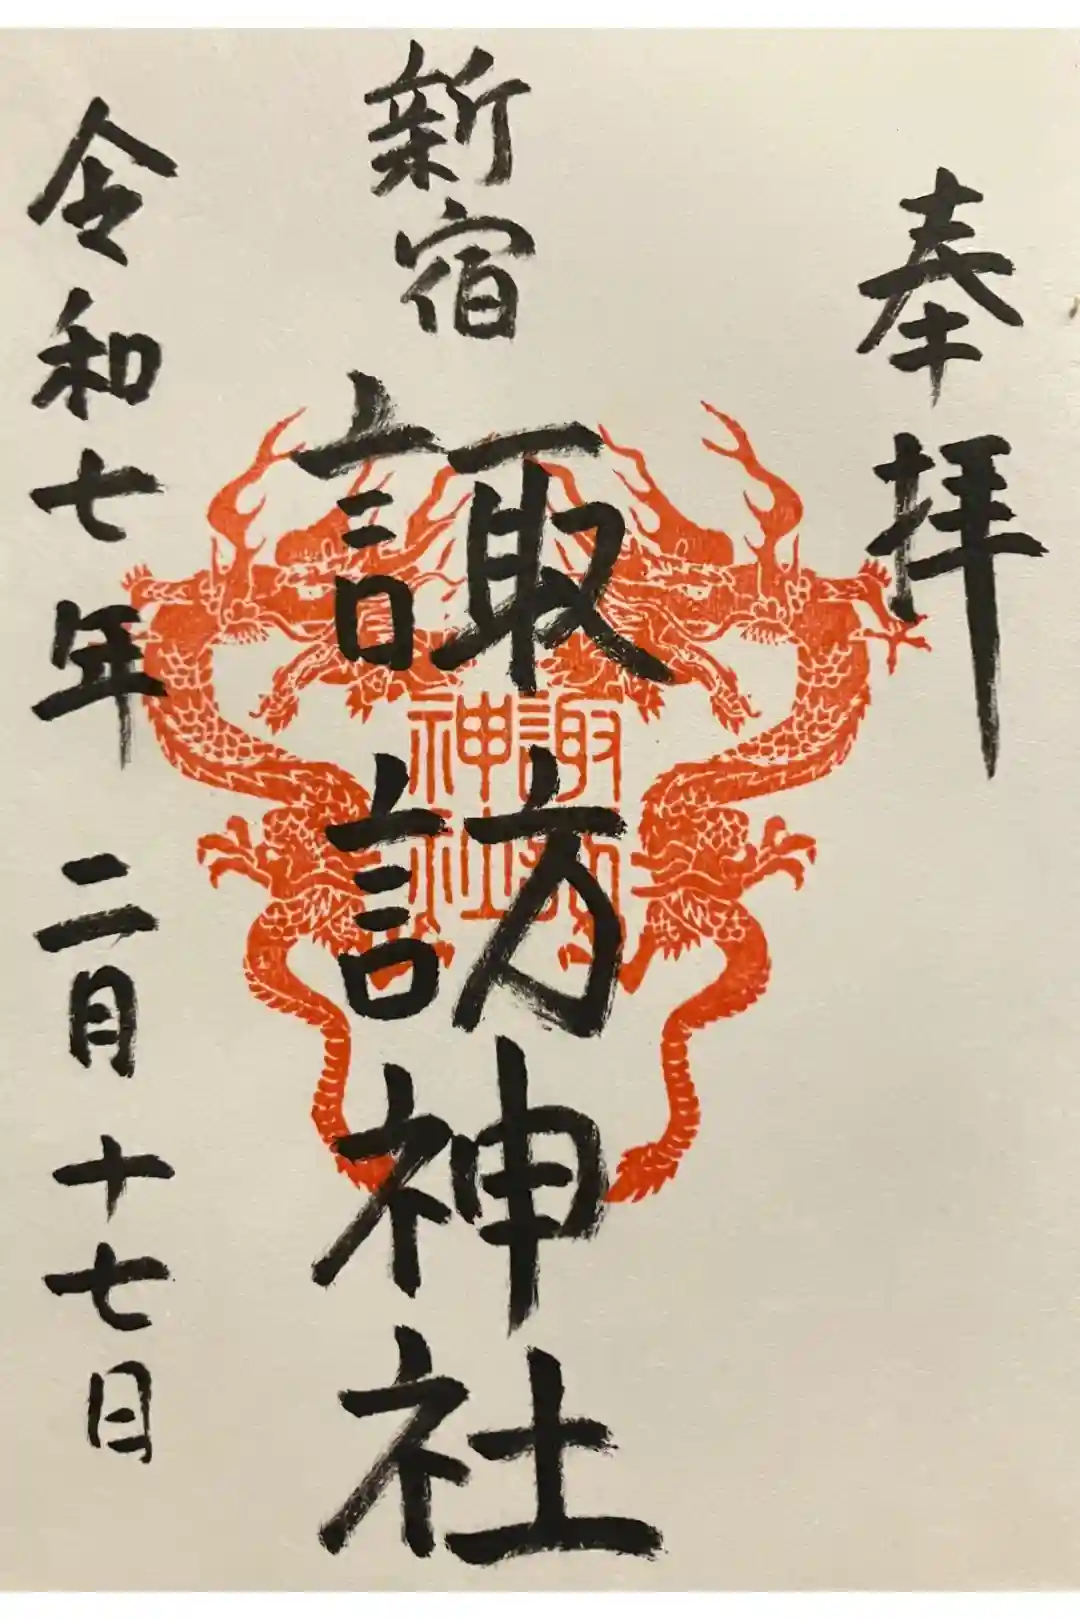 奉拝
新宿
諏訪神社
諏訪
神社
令和七年二月十七日